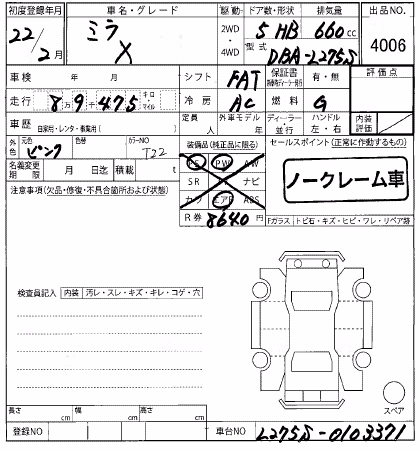 初度登録年月 車名・グレード 駆動 ドア数・形状 排気量 出品NO.
22/2月 ミラ X 2WD・4WD 5 HB 660cc 4006
型式 DBA-L275S
車検 年 月 シフト FAT 保証書 有・無 評価点
走行 8万9千475 キロ マイル 冷房 AC 燃料 G
車歴 自家用・レンタ・事業用( ) 定員 人 外車モデル 年 ディーラー・並行 ハンドル 左・右 内装評価
外色 元色 ピンク 色替 カラーNO T22 装備品(純正品に限る) セールスポイント(正常に作動するもの)
PS PW AW
名義変更期限 月 日迄 積載 t SR ナビ ノークレーム車
注意事項(欠品・修復・不具合箇所および状態) カワ エアB ABS
R券 8640円 Fガラス・トビ石・キズ・ヒビ・ワレ・リペア跡
検査員記入 内装 汚レ・スレ・キズ・キレ・コゲ・穴
スペア
長さ cm 幅 cm 高さ cm
登録NO 車台NO L275S-0103371